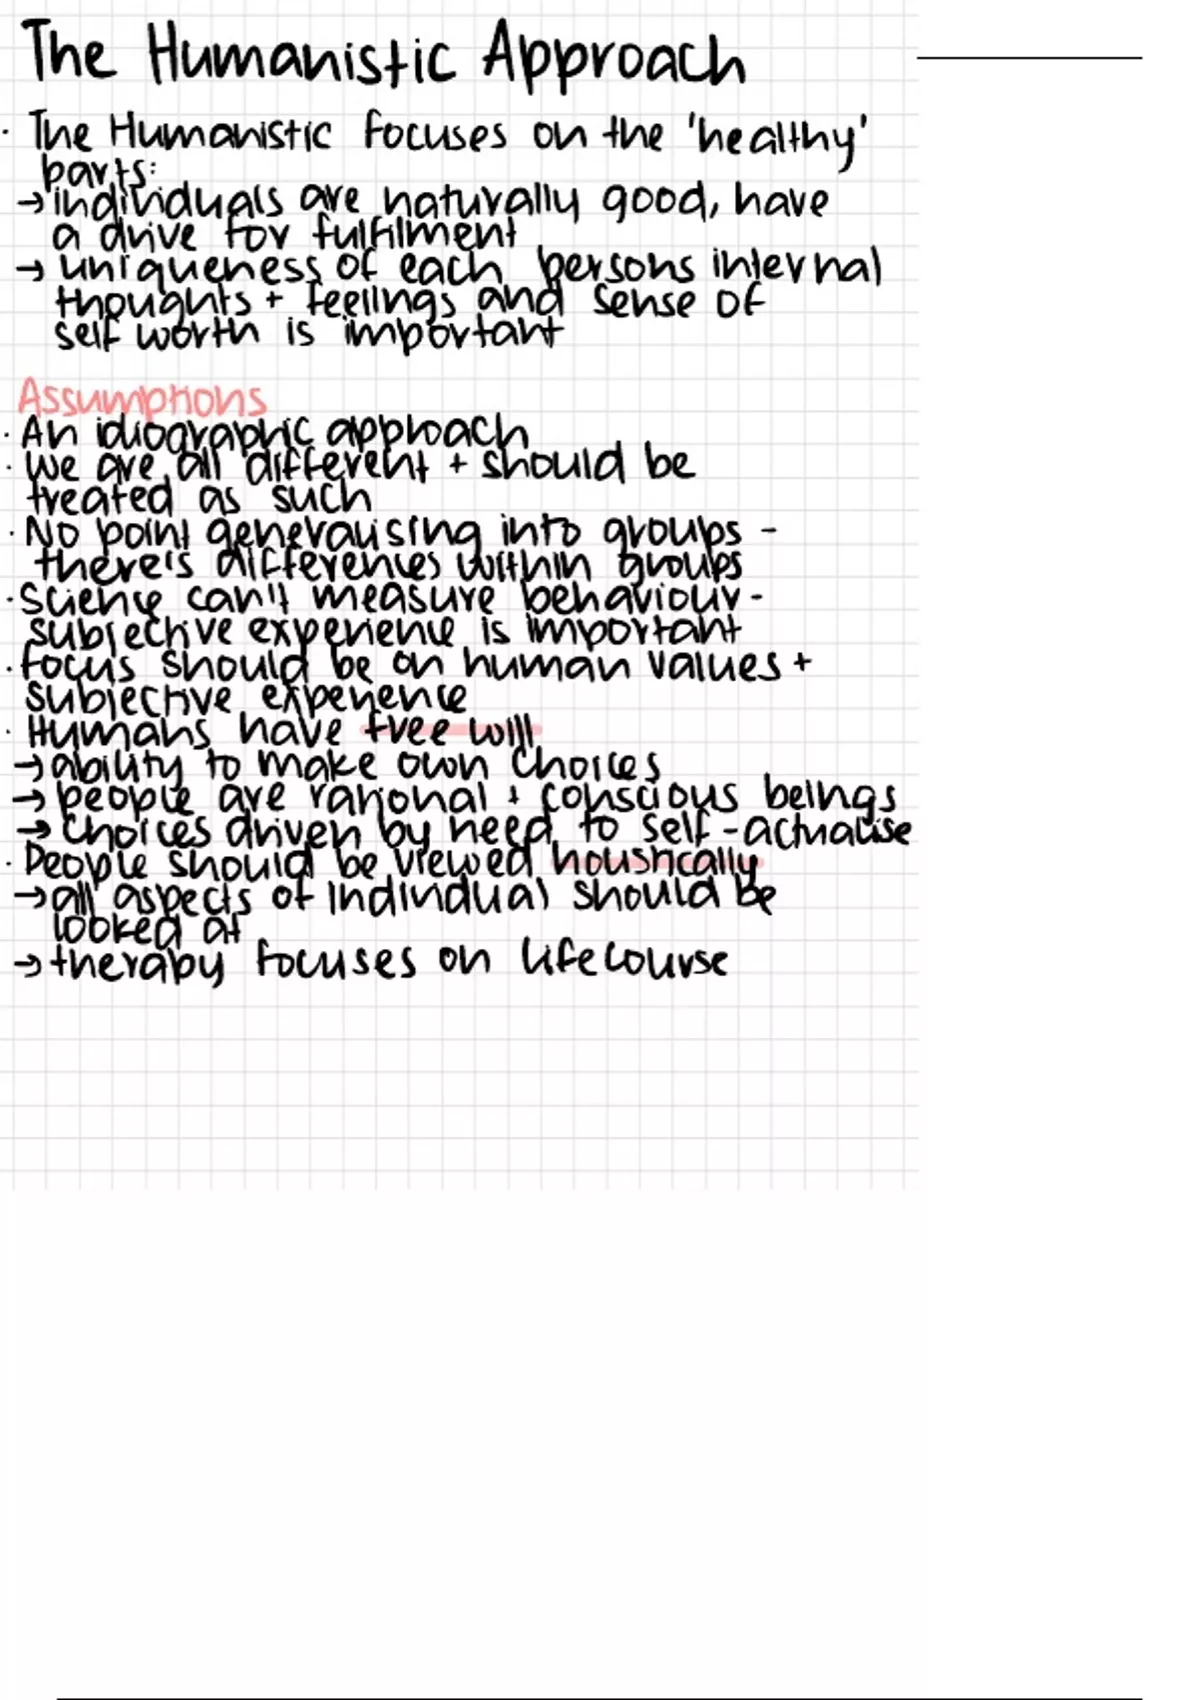 The Humanistic Approach
· The Humanistic focuses on the 'healthy'
parts:
→ individuals are naturally good, have
a drive for fulfilment
→ uniqueness of each persons internal
thoughts + feelings and sense of
self worth is important
Assumptions
· An idiographic approach
· We are all different + should be
treated as such
· No point generalising into groups -
there's differences within groups
· Science can't measure behaviour -
subjective experience is important
· focus should be on human values +
subjective experience
· Humans have free will
→ ability to make own choices
→ people are rational + conscious beings
→ choices driven by need to self-actualise
· People should be viewed holistically
→ all aspects of individual should be
looked at
→ therapy focuses on lifecourse